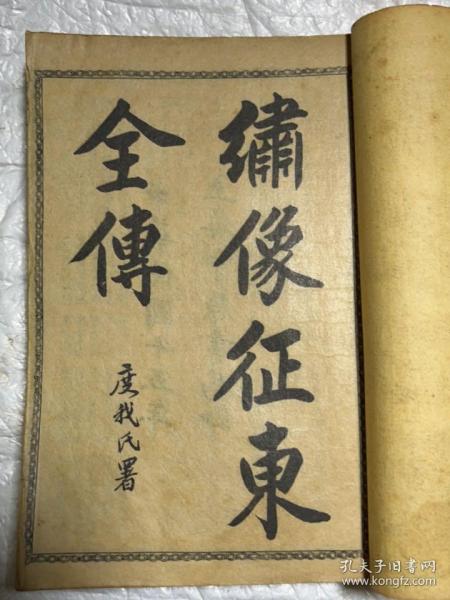 繡像征東
全傳
度我氏署
孔夫子旧书网
www.kongfz.com